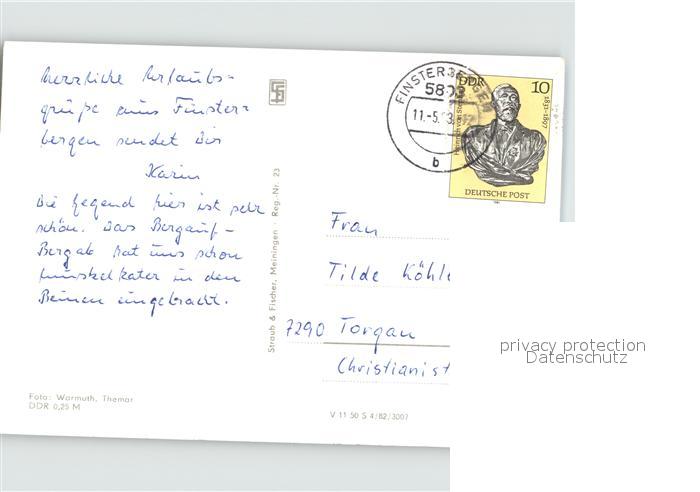 Herzliche Urlaubs-
grüße aus Finster-
bergen sendet Dir
Karin
Die Gegend hier ist sehr
schön. Das Bergauf-
Bergab hat uns schon
Muskelkater in den
Beinen eingebracht.
Foto: Warmuth, Themar
DDR 0,25 M
Straub & Fischer, Meiningen · Reg.-Nr. 23
FINSTERBERGEN
5803
11.-5.
b
DDR 10
Heinrich von
1831-1897
DEUTSCHE POST
1981
Frau
Tilde Köhle
7290 Torgau
Christianist
V 11 50 S 4/82/3007
privacy protection
Datenschutz